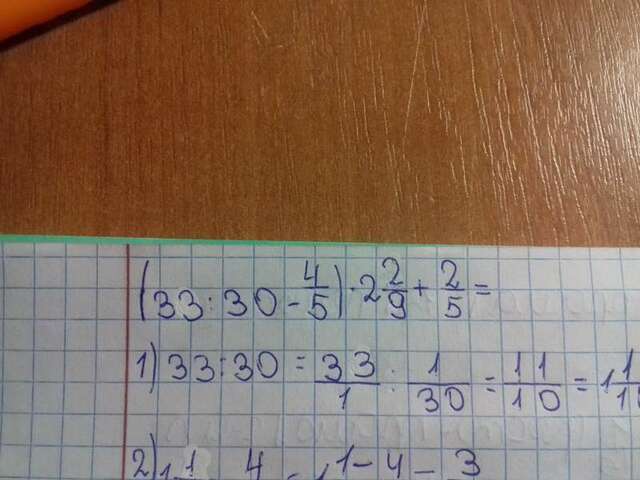 (33:30-4/5)·2 2/9+2/5=
1) 33:30=33/1·1/30=11/10=1 1/10
2) 1 1 4 1-4-3